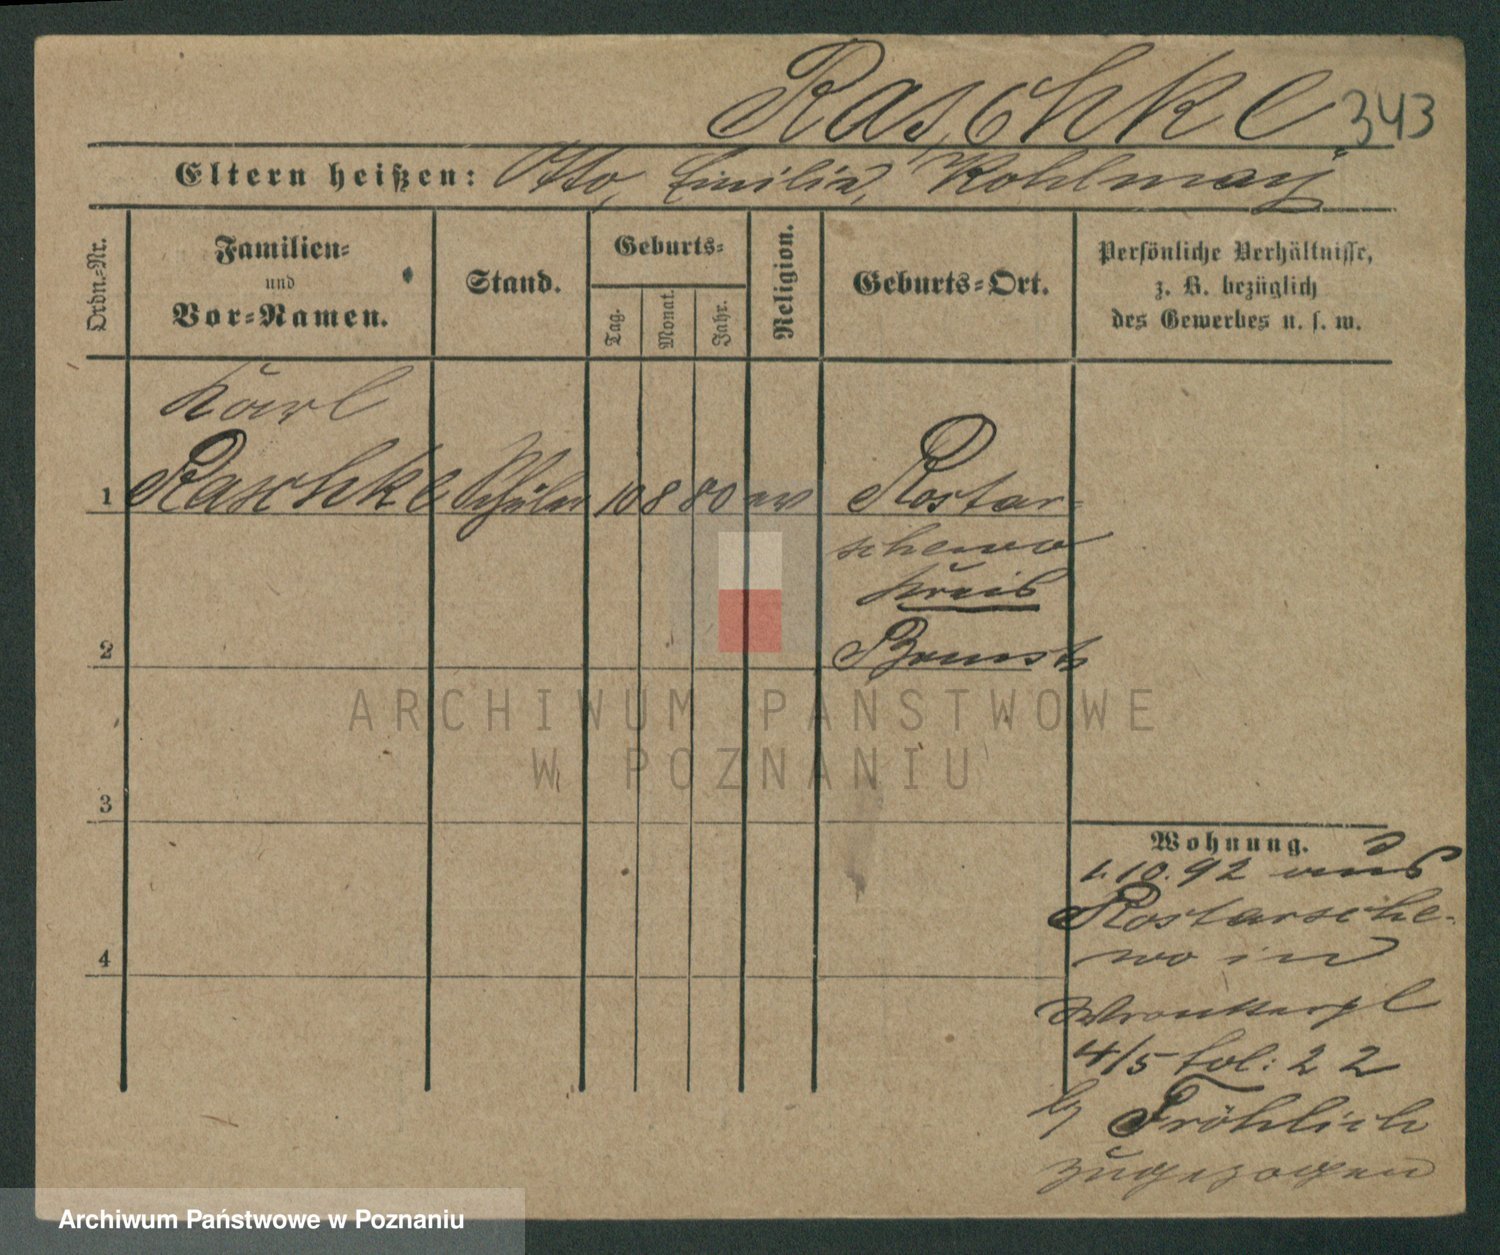 Raschke 343
Eltern heißen: Otto, Emilia, Kohlmay
Ordn.-Nr.
Familien-
und
Vor-Namen.
Stand.
Geburts-
Tag.
Monat.
Jahr.
Religion.
Geburts-Ort.
Persönliche Verhältnisse,
z. B. bezüglich
des Gewerbes u. s. w.
Karl
1 Raschke Schüler 10 8 80 ev Rostar-
schewo
Kreis
2 Bomst
3
4
Wohnung.
1.10.92 aus
Rostarsche-
wo in
Wronkerpl
4/5 fol: 22
b/ Fröhlich
zugezogen
ARCHIWUM PAŃSTWOWE
W POZNANIU
Archiwum Państwowe w Poznaniu